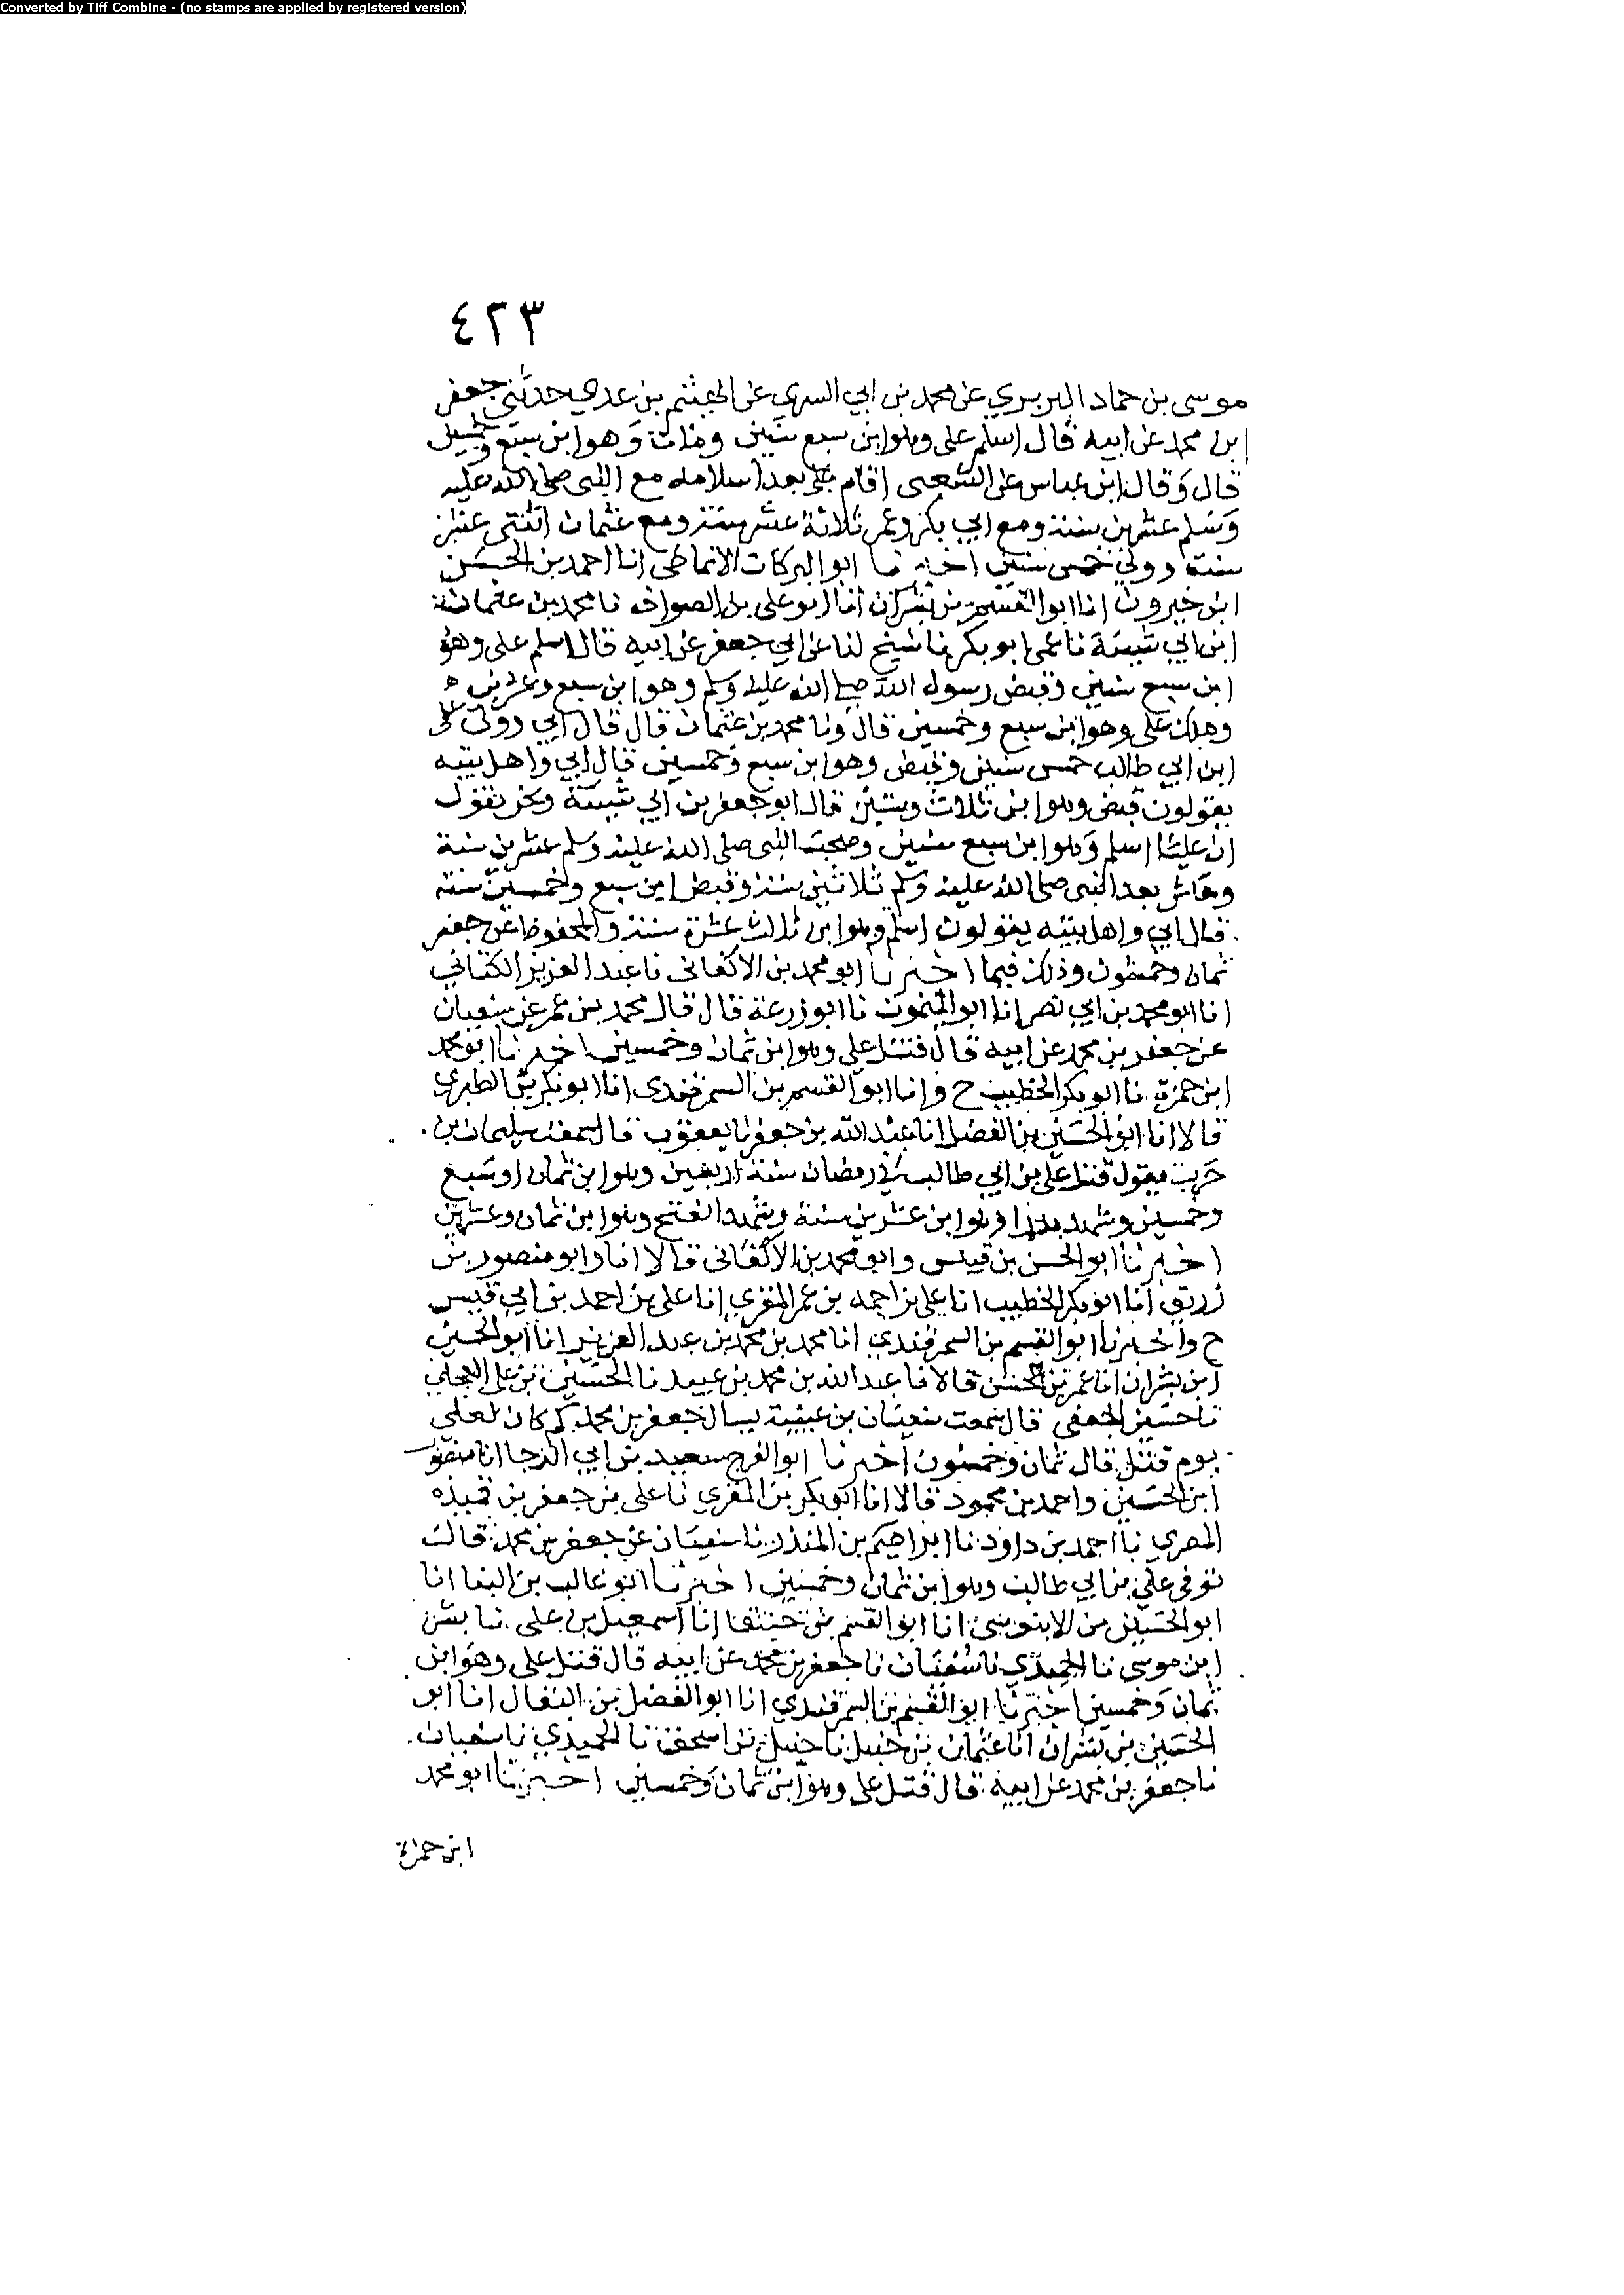 Converted by Tiff Combine - (no stamps are applied by registered version)
٤٢٣
موسى بن حماد البربري عن محمد بن ابي السري عن الهيثم بن عدي حدثني جعفر
ابن محمد عن ابيه قال اسلم على وهو ابن سبع سنين ومات وهو ابن سبع وخمسين
قال وقال ابن عباس عن الشعبى اقام على بعد اسلامه مع النبى صلى الله عليه
وسلم عشرين سنة ومع ابي بكر وعمر ثلاثة عشر سنة ومع عثمان اثنتى عشرة
سنة وولي خمس سنين اخبرنا ابو البركات الانماطى انا احمد بن الحسن
ابن خيرون انا ابو القسم بن بشران انا ابو على بن الصواف نا محمد بن عثمان
ابن ابي شيبة نا عمى ابو بكر نا شيخ لنا عن ابي جعفر عن ابيه قال اسلم على وهو
ابن سبع سنين وقبض رسول الله صلى الله عليه وسلم وهو ابن سبع وعشرين
وهلك على وهو ابن سبع وخمسين قال ونا محمد بن عثمان قال قال ابي وولى على
ابن ابي طالب خمس سنين وقبض وهو ابن سبع وخمسين قال ابي واهل بيته
يقولون قبض وهو ابن ثلاث وستين قال ابو جعفر بن ابي شيبة ونحن نقول
ان عليا اسلم وهو ابن سبع سنين وصحب النبى صلى الله عليه وسلم عشرين سنة
وعاش بعد النبى صلى الله عليه وسلم ثلاثين سنة وقبض ابن سبع وخمسين سنة
قال ابي واهل بيته يقولون اسلم وهو ابن ثلاث عشرة سنة والمحفوظ عن جعفر
ثمان وخمسون وذلك فيما اخبرنا ابو محمد بن الاكفانى نا عبد العزيز الكتاني
انا ابو محمد بن ابي نصر انا ابو الميمون نا ابو زرعة قال قال محمد بن عمر عن سفيان
عن جعفر بن محمد عن ابيه قال قتل على وهو ابن ثمان وخمسين اخبرنا ابو محمد
ابن حمزة نا ابو بكر الخطيب ح وانا ابو القسم بن السمرقندى انا ابو بكر بن الطبري
قالا انا ابو الحسين بن الفضل انا عبد الله بن جعفر نا يعقوب قال سمعت سليمان بن
حرب يقول قتل على بن ابي طالب في رمضان سنة اربعين وهو ابن ثمان او سبع
وخمسين وشهد بدرا وهو ابن عشرين سنة وشهد الفتح وهو ابن ثمان وعشرين
اخبرنا ابو الحسن بن قبيس وابو محمد بن الاكفانى قالا انا وابو منصور بن
زريق انا ابو بكر الخطيب انا على بن احمد بن عمر المقري انا على بن احمد بن ابي قيس
ح واخبرنا ابو القسم بن السمرقندي انا محمد بن محمد بن عبد العزيز انا ابو الحسين
ابن بشران انا عمر بن الحسن قالا نا عبد الله بن محمد بن عبيد نا الحسين بن على العجلي
نا حسين الجعفى قال سمعت سفيان بن عيينة يسال جعفر بن محمد كم كان لعلي
يوم قتل قال ثمان وخمسون اخبرنا ابو الفرج سعيد بن ابي الرجا انا منصور
ابن الحسين واحمد بن محمود قالا انا ابو بكر بن المقري نا على بن جعفر بن
المصري نا احمد بن داود نا ابراهيم بن المنذر نا سفيان عن جعفر بن محمد قال
توفى على بن ابي طالب وهو ابن ثمان وخمسين اخبرنا ابو غالب بن البنا انا
ابو الحسين بن الابنوسى انا ابو القسم بن حنيفا انا اسمعيل بن على نا بشر
ابن موسى نا الحميدي نا سفيان نا جعفر بن محمد عن ابيه قال قتل على وهو ابن
ثمان وخمسين اخبرنا ابو القسم بن السمرقندي انا ابو الفضل بن البقال انا ابو
الحسين بن بشران انا عثمان بن حنبل نا حنبل بن اسحق نا الحميدي نا سفيان
نا جعفر بن محمد عن ابيه قال قتل على وهو ابن ثمان وخمسين اخبرنا ابو محمد
ابن حمزة